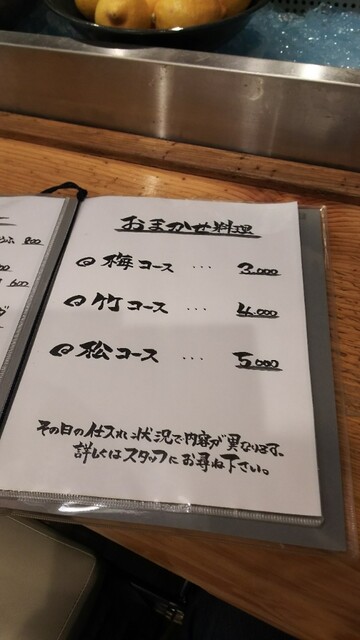 おまかせ料理
梅コース ... 3,000
竹コース ... 4,000
松コース ... 5,000
その日の仕入れ状況で内容が異なります。
詳しくはスタッフにお尋ね下さい。
800
600